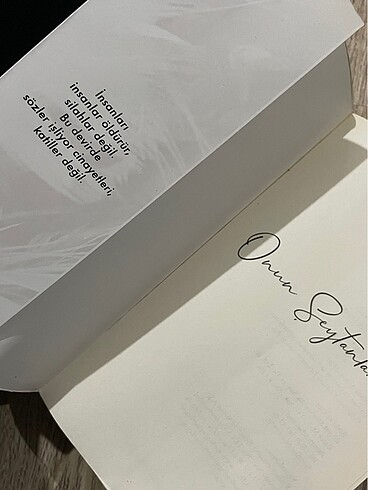 İnsanları
insanlar öldürür,
silahlar değil.
Bu devirde
sözler işliyor cinayetleri,
katiller değil.
Onun